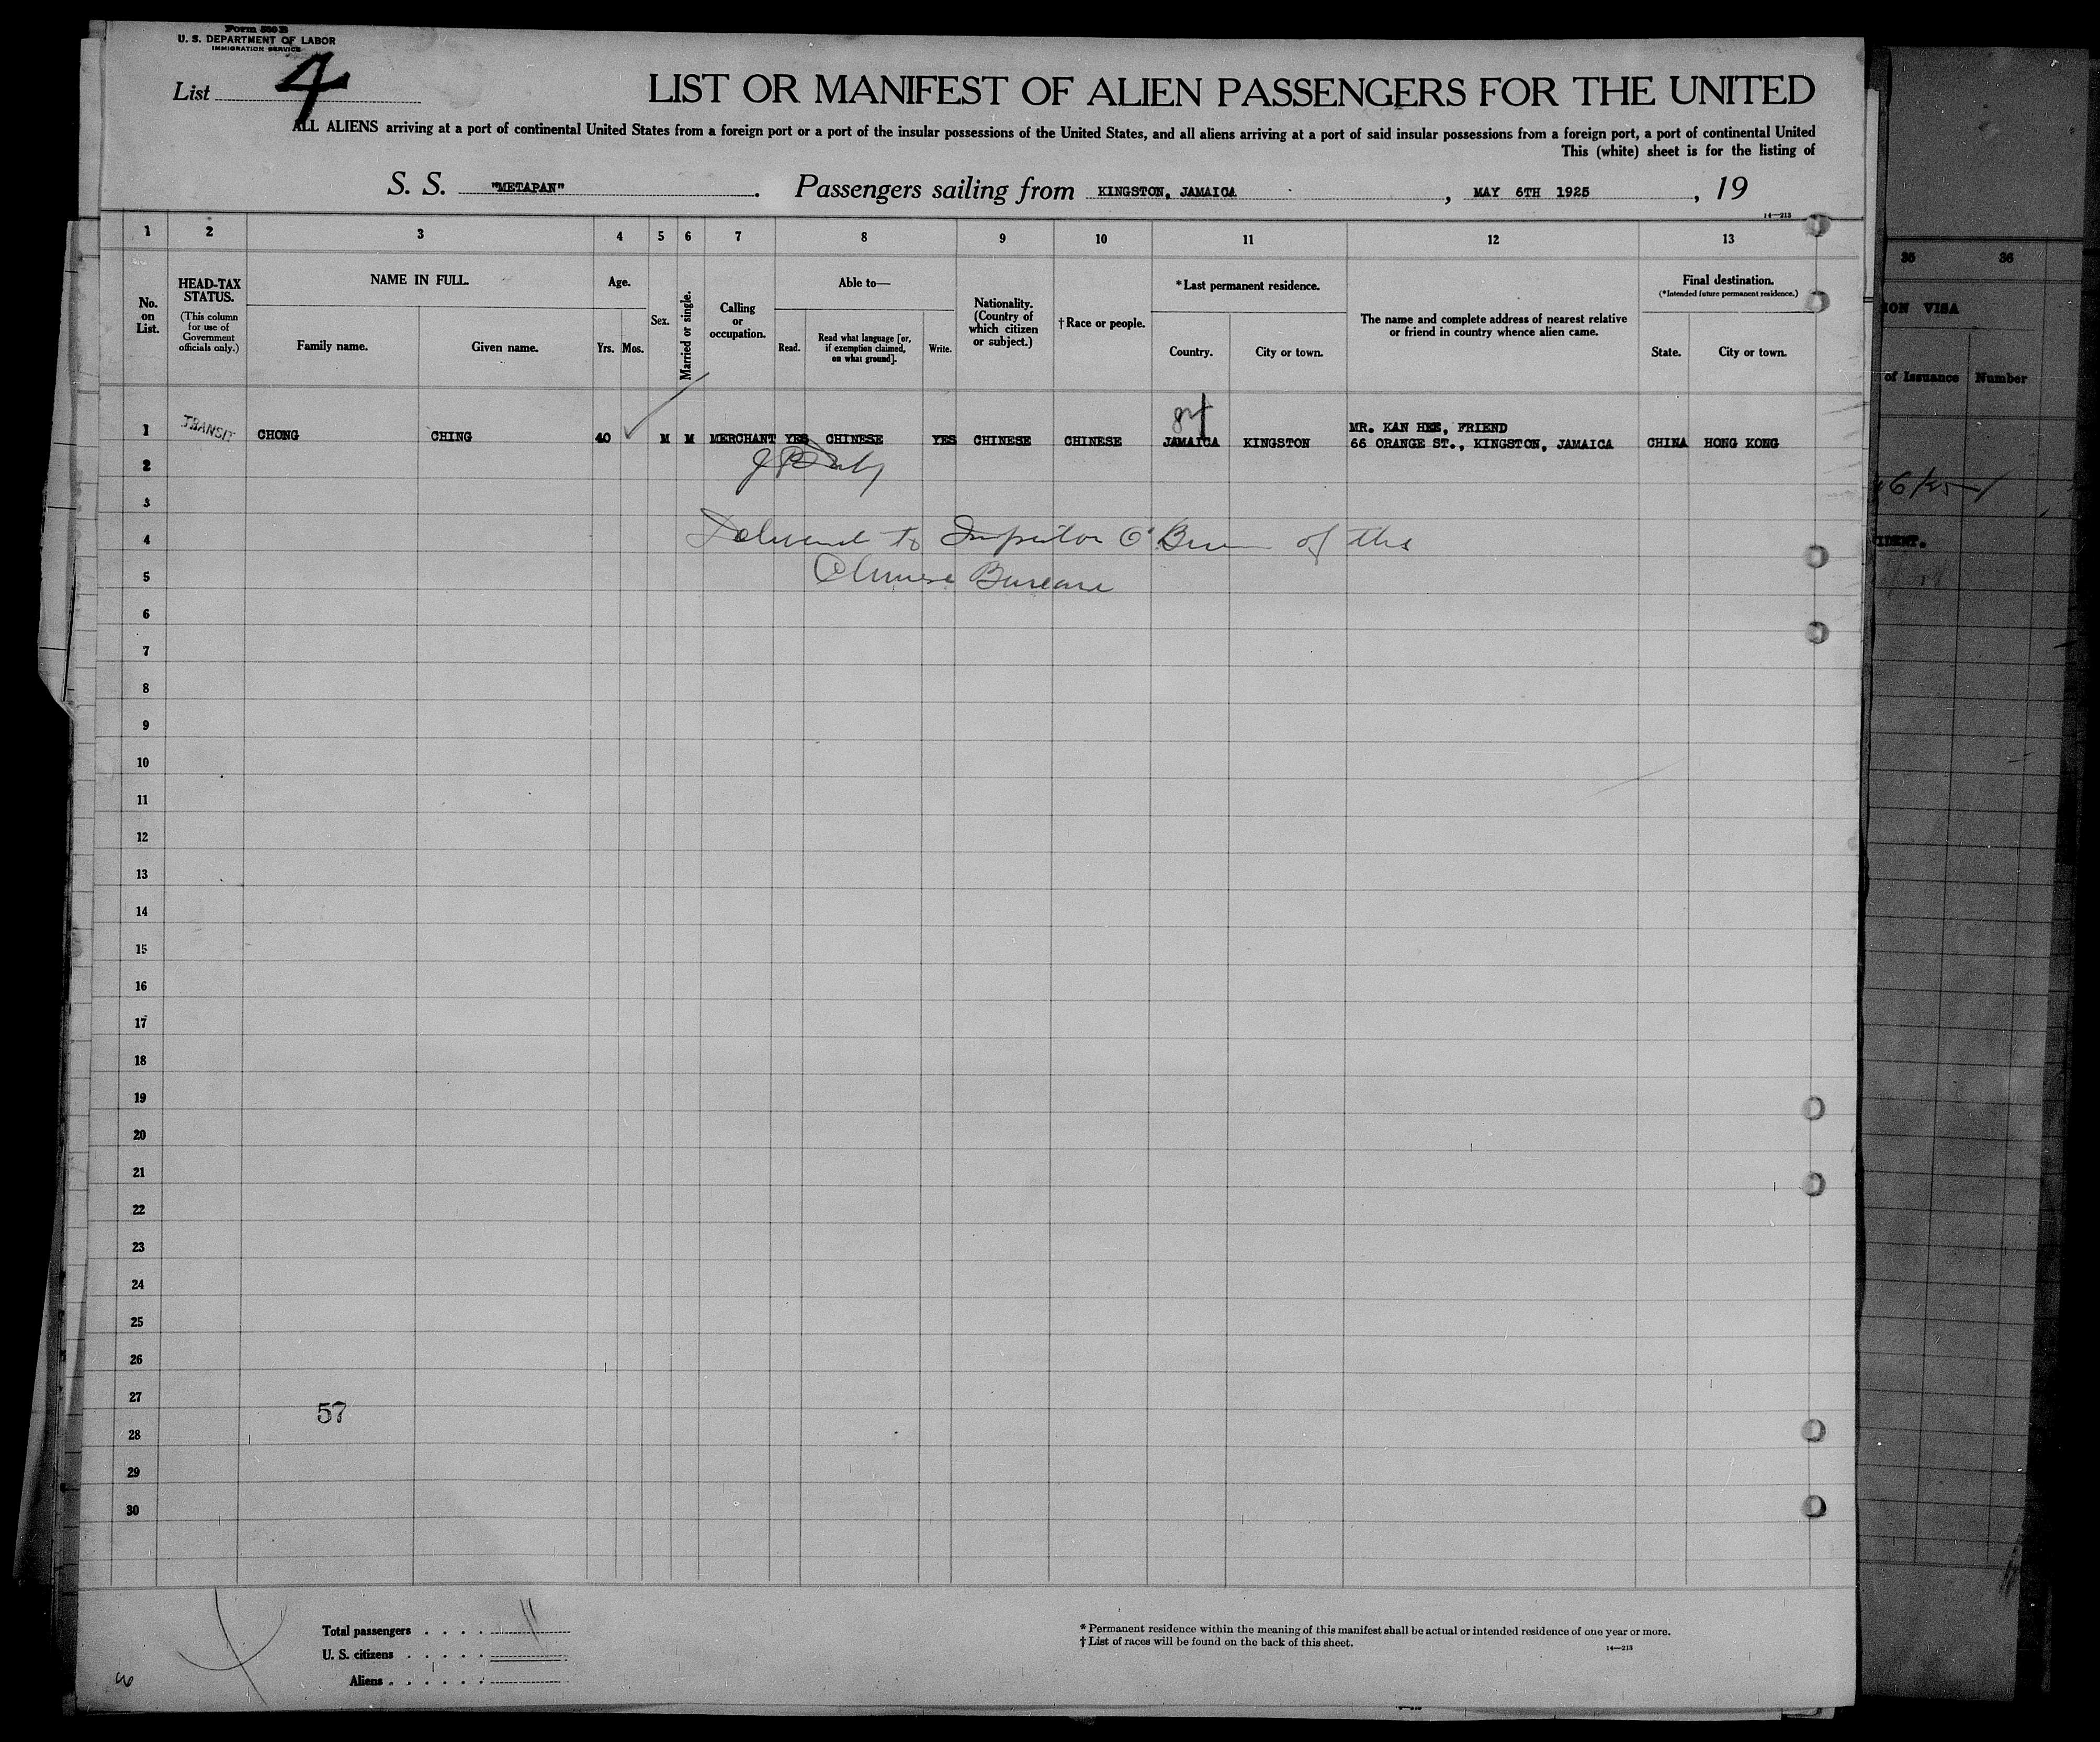 Form 500 B
U. S. DEPARTMENT OF LABOR
IMMIGRATION SERVICE
List 4
LIST OR MANIFEST OF ALIEN PASSENGERS FOR THE UNITED
ALL ALIENS arriving at a port of continental United States from a foreign port or a port of the insular possessions of the United States, and all aliens arriving at a port of said insular possessions from a foreign port, a port of continental United
This (white) sheet is for the listing of
S. S. "METAPAN". Passengers sailing from KINGSTON, JAMAICA, MAY 6TH 1925, 19
14—213
1 2 3 4 5 6 7 8 9 10 11 12 13
35 36
No. on List.
HEAD-TAX STATUS.
(This column for use of Government officials only.)
NAME IN FULL.
Family name. Given name.
Age.
Yrs. Mos.
Sex.
Married or single.
Calling or occupation.
Able to—
Read. Read what language [or, if exemption claimed, on what ground]. Write.
Nationality. (Country of which citizen or subject.)
†Race or people.
*Last permanent residence.
Country. City or town.
The name and complete address of nearest relative or friend in country whence alien came.
Final destination.
(*Intended future permanent residence.)
State. City or town.
ION VISA
of Issuance Number
84
MR. KAN HEE, FRIEND
1 TRANSIT CHONG CHING 40 M M MERCHANT YES CHINESE YES CHINESE CHINESE JAMAICA KINGSTON 66 ORANGE ST., KINGSTON, JAMAICA CHINA HONG KONG
2
3
4 Delivered to Inspector O'Brien of the
5 Chinese Bureau
IDENT.
6
7
8
9
10
11
12
13
14
15
16
17
18
19
20
21
22
23
24
25
26
27
57
28
29
30
Total passengers
U. S. citizens
Aliens
* Permanent residence within the meaning of this manifest shall be actual or intended residence of one year or more.
† List of races will be found on the back of this sheet.
14—213